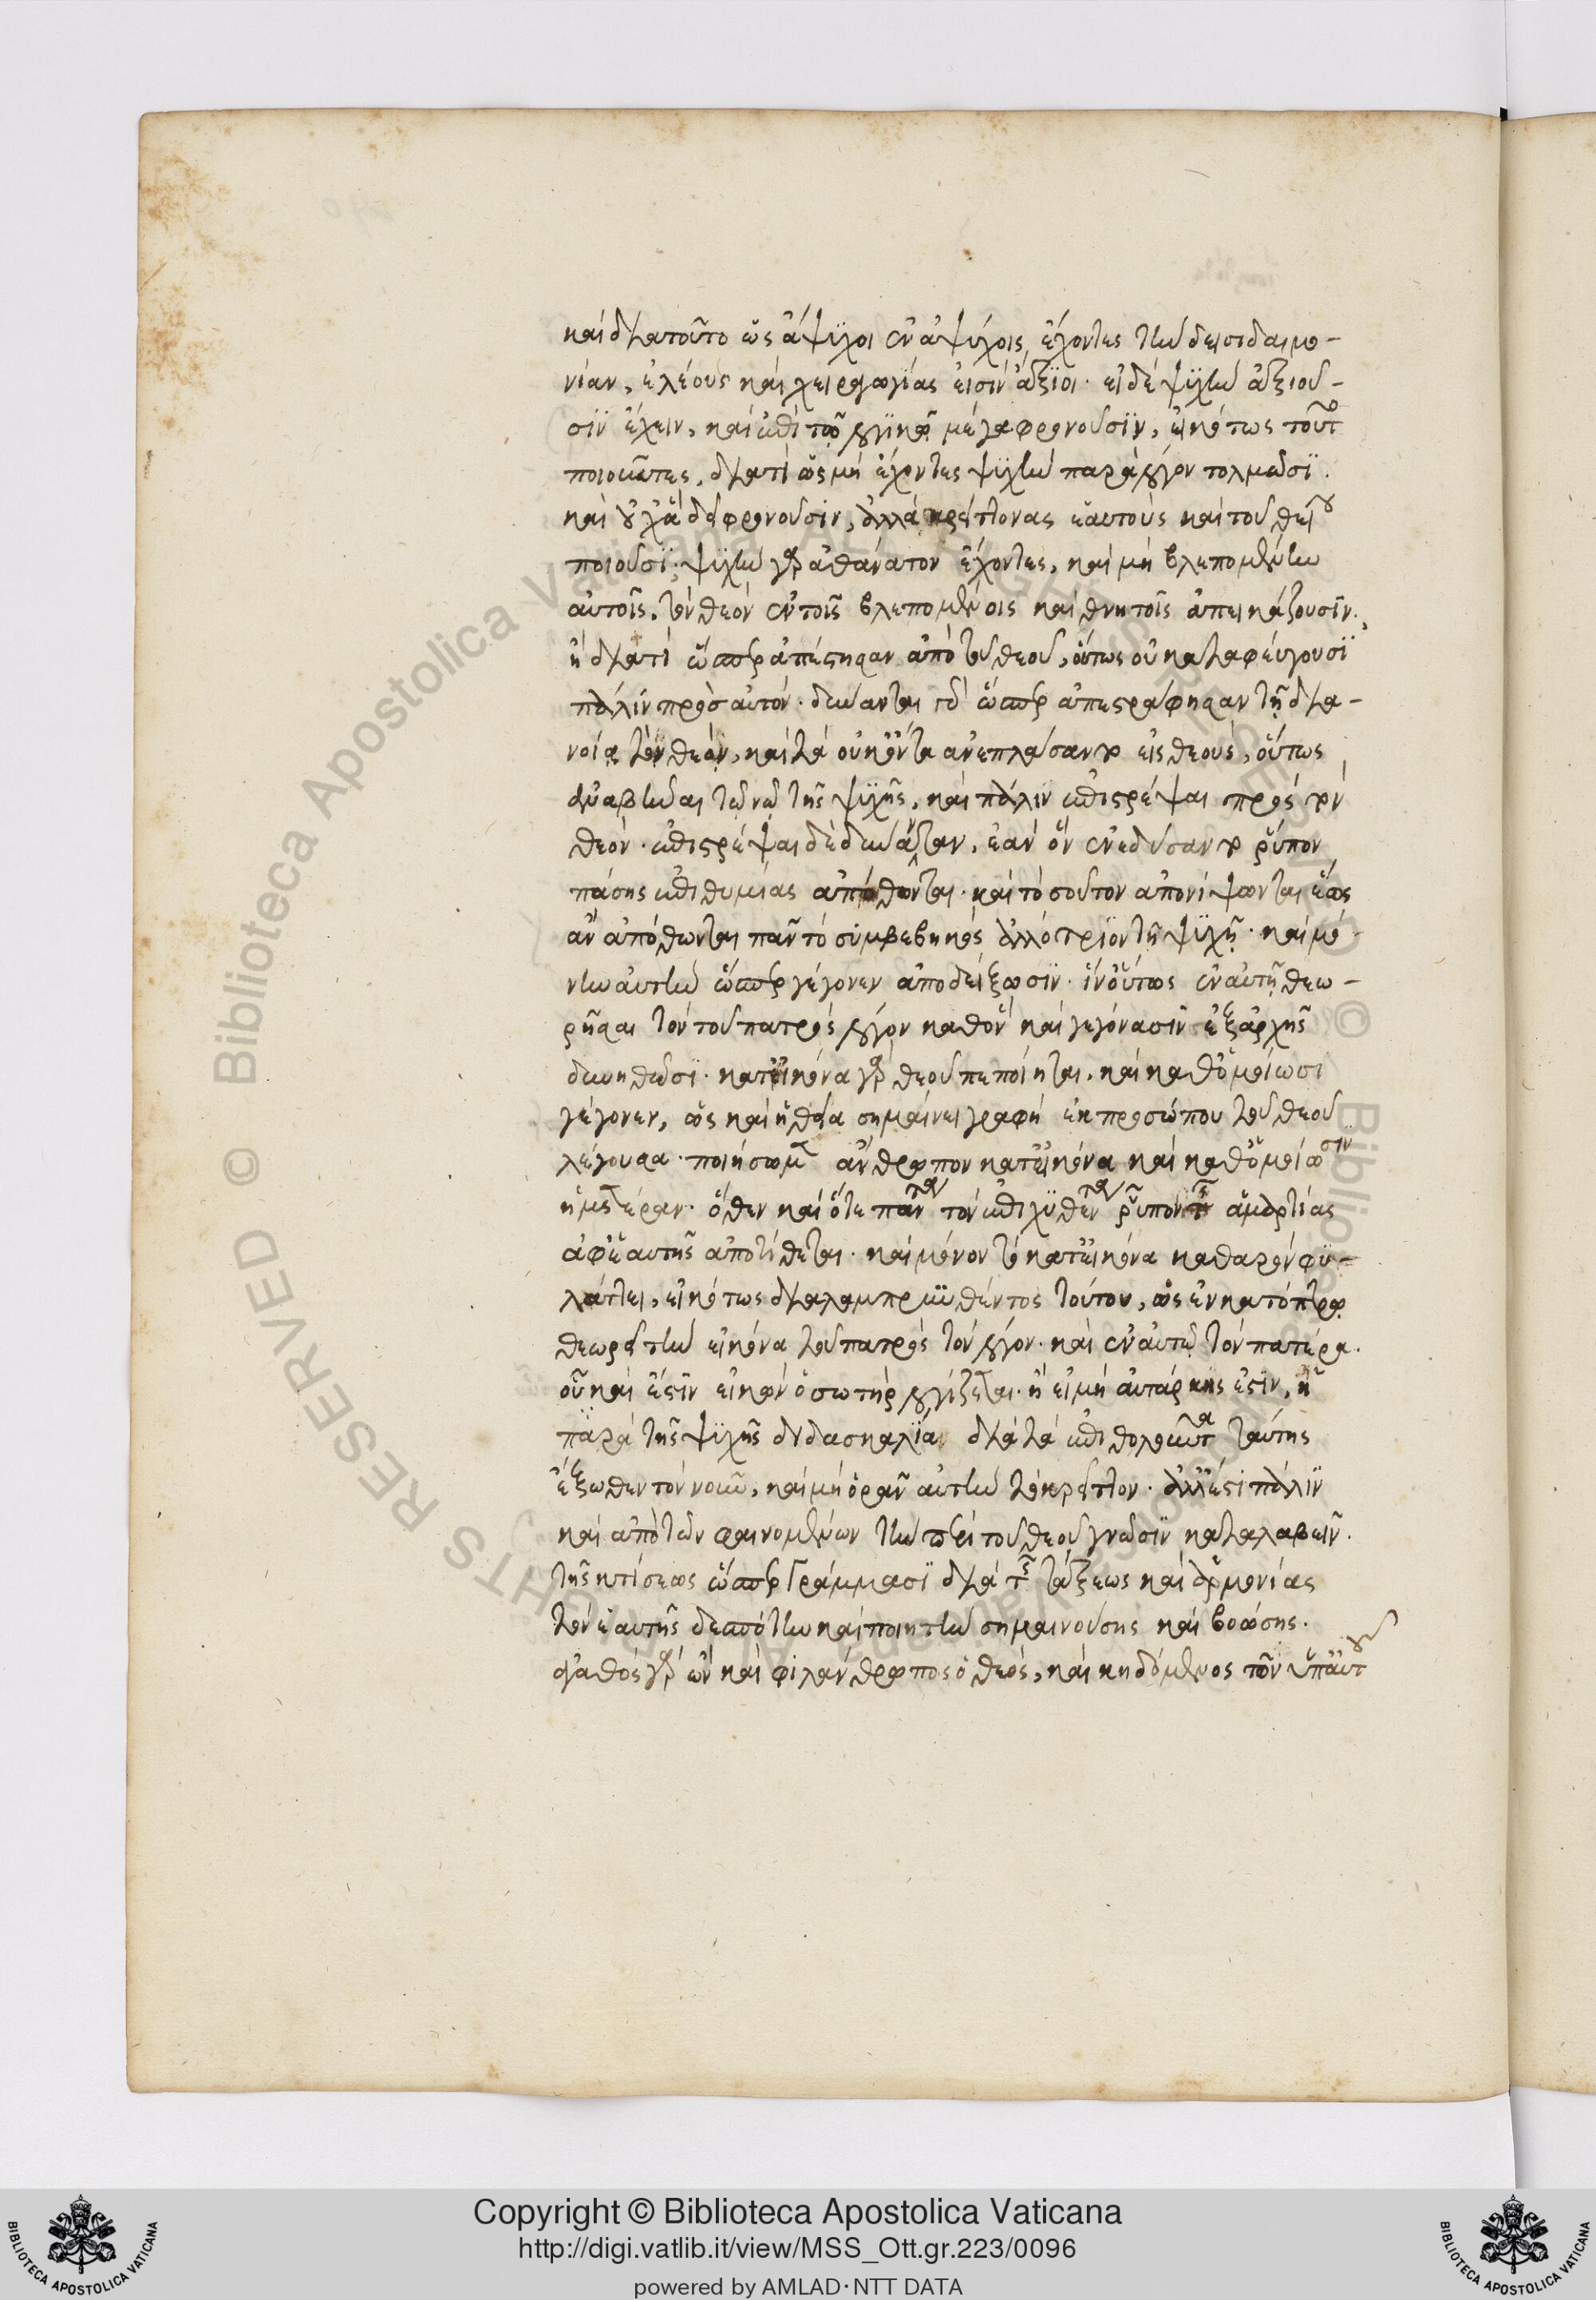 καὶ διατοῦτο ὡς ἄψυχοι ἐν ἀψύχοις ἔχοντες τὴν δεισιδαιμο-
νίαν, ἐλέους καὶ χειραγωγίας εἰσὶν ἄξιοι· εἰ δὲ ψυχὴν ἀξιοῦ-
σιν ἔχειν, καὶ ἐπὶ τῷ λογικῷ μέγα φρονοῦσιν, εἰκότως τοῦτο
ποιοῦντες, διατί ὡς μὴ ἔχοντες ψυχὴν παρὰ λόγον τολμῶσι.
καὶ οὐχ ἃ δεῖ φρονοῦσιν, ἀλλὰ κρείττονας ἑαυτοὺς καὶ τοῦ θείου
ποιοῦσι· ψυχὴν γὰρ ἀθάνατον ἔχοντες, καὶ μὴ βλεπομένην
αὐτοῖς, τὸν θεὸν ἐν τοῖς βλεπομένοις καὶ θνητοῖς ἀπεικάζουσιν·
ἢ διατί ὥσπερ ἀπέστησαν ἀπὸ τοῦ θεοῦ, οὕτως οὐ καταφεύγουσι
πάλιν πρὸς αὐτόν· δύνανται γὰρ ὥσπερ ἀπεστράφησαν τῇ δια-
νοίᾳ τὸν θεὸν, καὶ τὰ οὐκ ὄντα ἀνεπλάσαντο εἰς θεοὺς, οὕτως
ἀναβῆναι τῷ νῷ τῆς ψυχῆς, καὶ πάλιν ἐπιστρέψαι πρὸς τὸν
θεόν· ἐπιστρέψαι δὲ δύνανται, ἐὰν ὃν ἐνεδύσαντο ῥύπον
πάσης ἐπιθυμίας ἀπόθωνται· καὶ τὸ σοῦτον ἀπονίψωνται ἕως
ἂν ἀπόθωνται πᾶν τὸ συμβεβηκὸς ἀλλότριον τῇ ψυχῇ· καὶ μό-
νην αὐτὴν ὥσπερ γέγονεν ἀποδείξωσιν· ἵν οὕτως ἐν αὐτῇ θεω-
ρῆσαι τὸν τοῦ πατρὸς λόγον καθ ὃν καὶ γεγόνασιν ἐξ ἀρχῆς
δυνηθῶσι· κατ εἰκόνα γὰρ θεοῦ πεποίηται, καὶ καθ ὁμοίωσι
γέγονεν, ὡς καὶ ἡ θεία σημαίνει γραφὴ ἐκ προσώπου τοῦ θεοῦ
λέγουσα· ποιήσωμεν ἄνθρωπον κατ εἰκόνα καὶ καθ ὁμοίωσιν
ἡμετέραν· ὅθεν καὶ ὅτε πάντα τὸν ἐπιχυθέντα ῥύπον τῆς ἁμαρτίας
ἀφ ἑαυτῆς ἀποτίθεται· καὶ μόνον τὸ κατ εἰκόνα καθαρὸν φυ-
λάττει, εἰκότως διαλαμπρυνθέντος τούτου, ὡς ἐν κατόπτρῳ
θεωρεῖ τὴν εἰκόνα τοῦ πατρὸς τὸν λόγον· καὶ ἐν αὐτῷ τὸν πατέρα·
οὗ καὶ ἔστιν εἰκὼν ὁ σωτὴρ λογίζεται· ἢ εἰ μὴ αὐτάρκης ἐστὶν, ἡ
παρὰ τῆς ψυχῆς διδασκαλία διὰ τὰ ἐπιθολοῦντα ταύτης
ἔξωθεν τὸν νοῦν, καὶ μὴ ὁρᾶν αὐτὴν τὸ κρεῖττον· ἀλλ ἔστι πάλιν
καὶ ἀπὸ τῶν φαινομένων τὴν περὶ τοῦ θεοῦ γνῶσιν καταλαβεῖν·
τῆς κτίσεως ὥσπερ γράμμασι διὰ τῆς τάξεως καὶ ἁρμονίας
τὸν ἑαυτῆς δεσπότην καὶ ποιητὴν σημαινούσης καὶ βοώσης·
ἀγαθὸς γὰρ ὢν καὶ φιλάνθρωπος ὁ θεὸς, καὶ κηδόμενος τῶν ὑπ αὐτοῦ
Copyright © Biblioteca Apostolica Vaticana
http://digi.vatlib.it/view/MSS_Ott.gr.223/0096
powered by AMLAD·NTT DATA